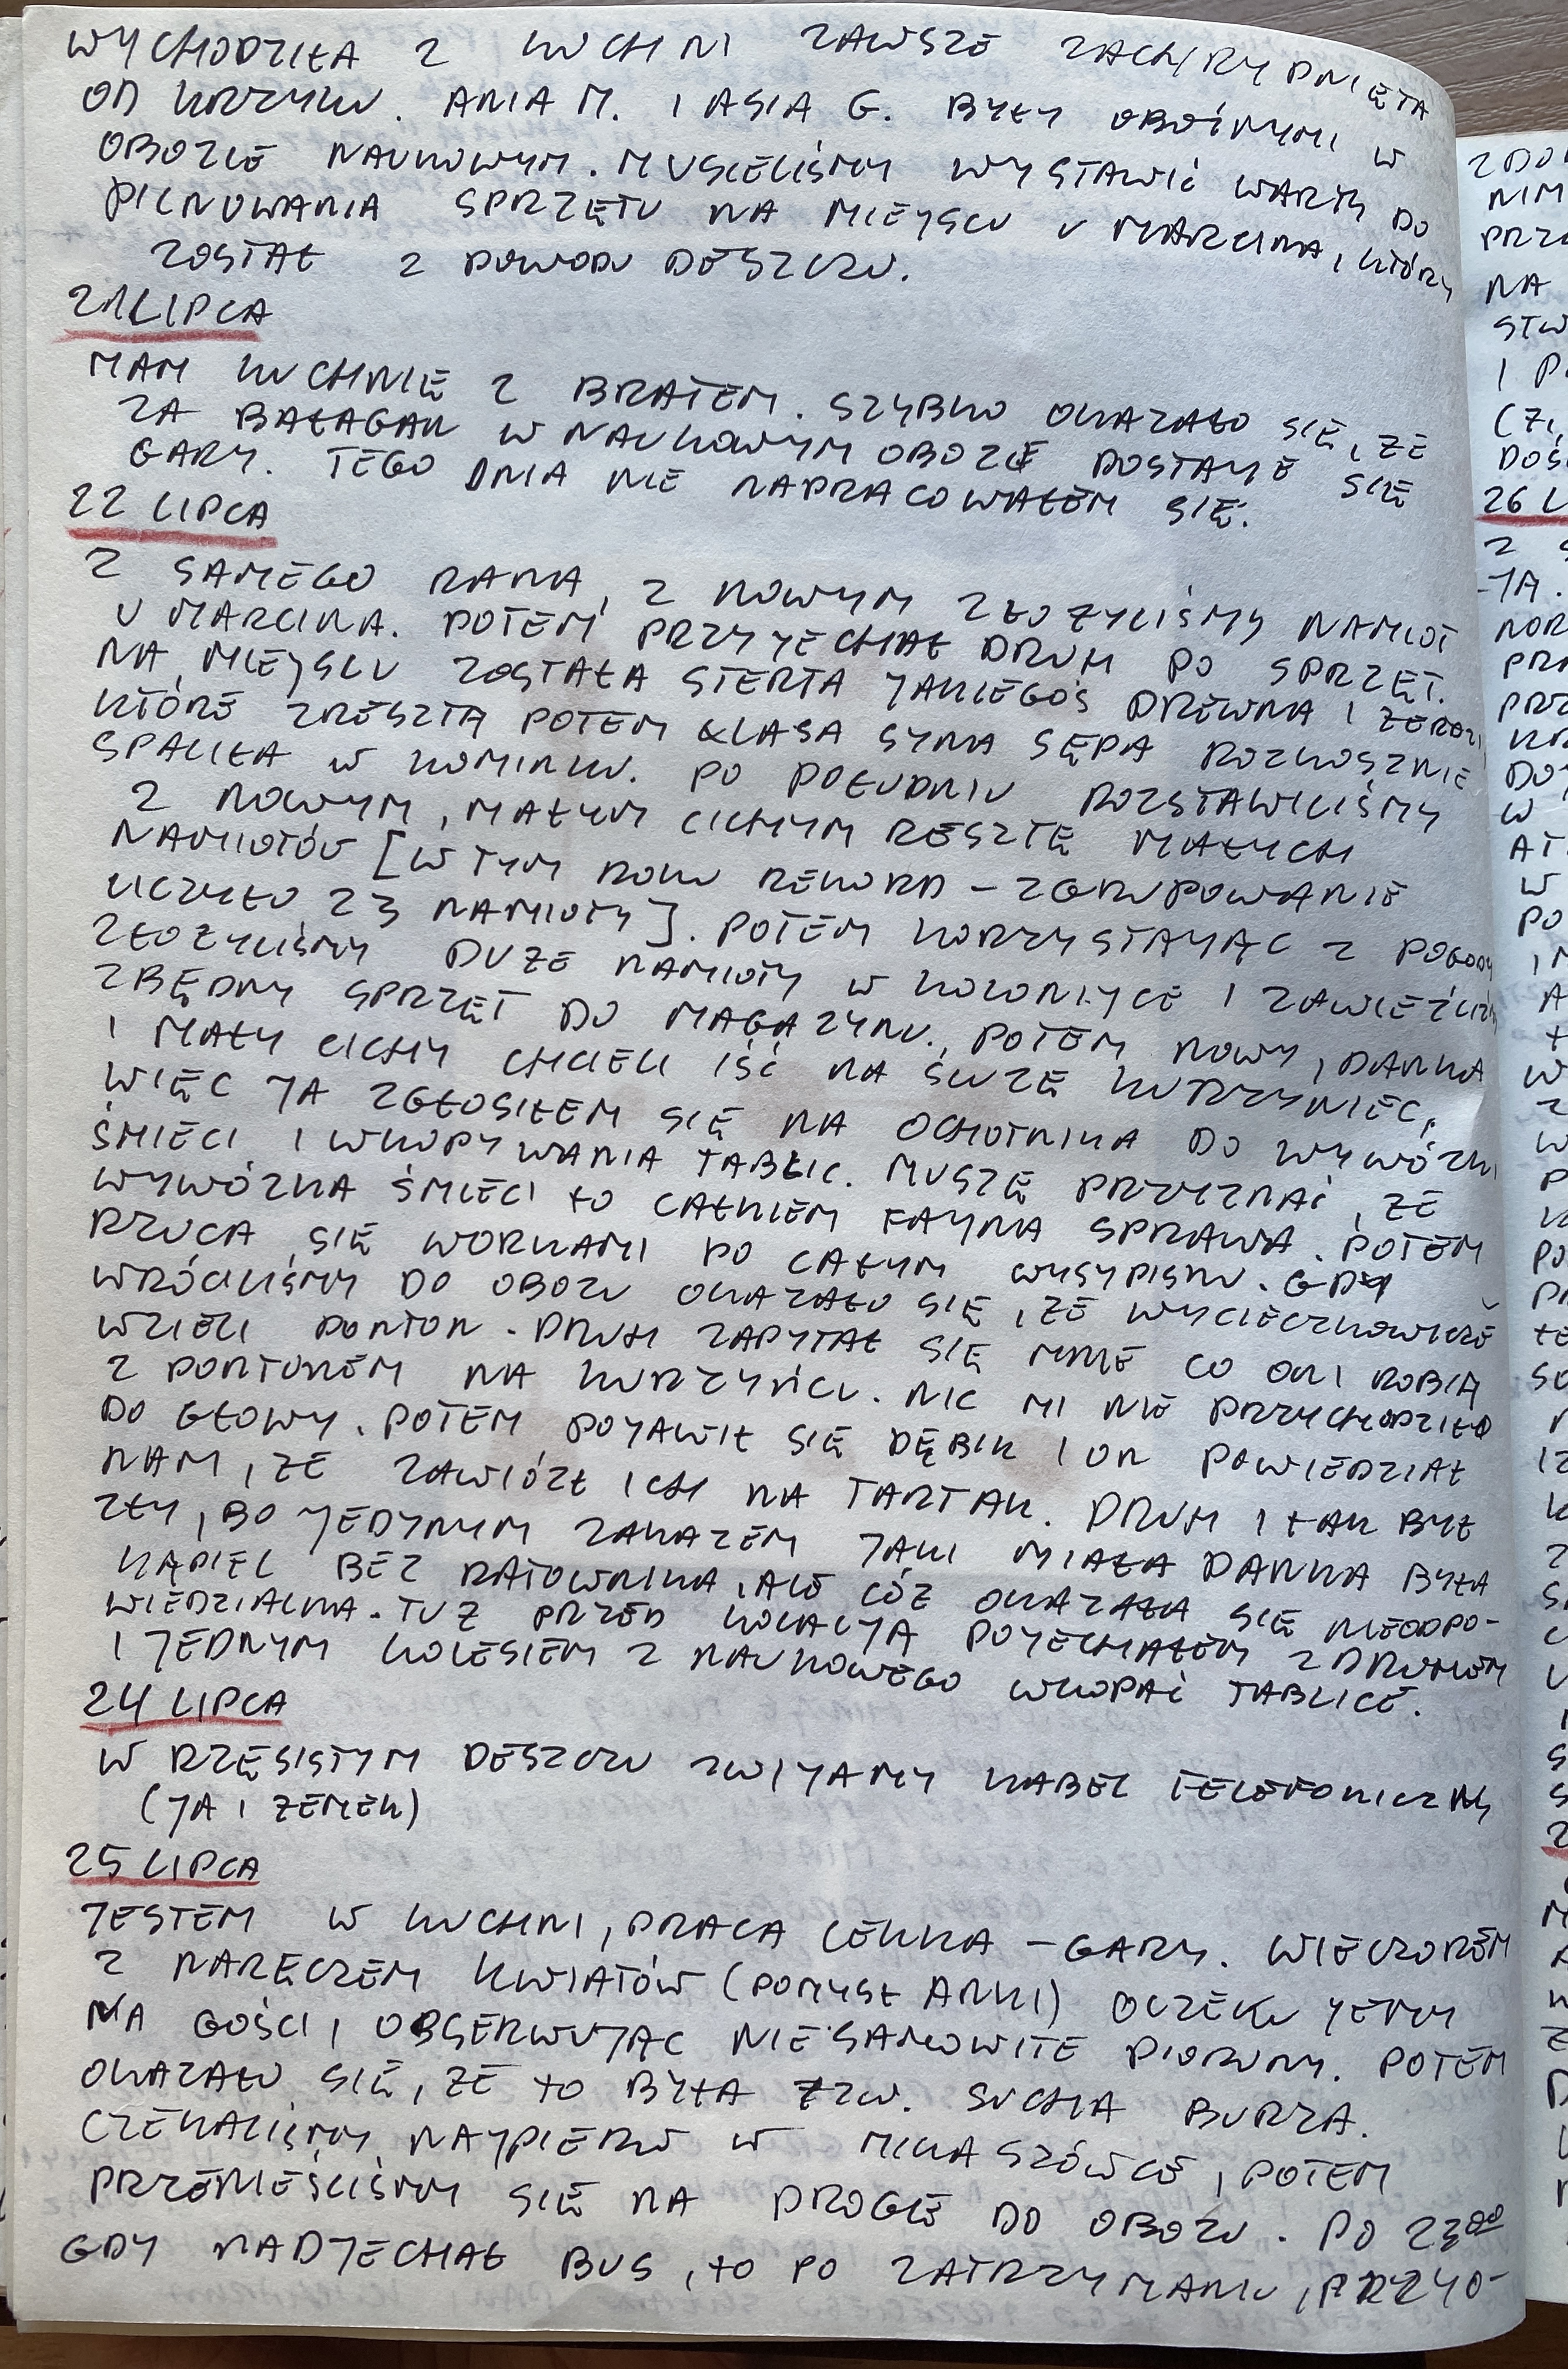 WYCHODZIŁA Z KUCHNI ZAWSZE ZACHRYPNIĘTA
OD KRZYKU. ANIA M. I ASIA G. BYŁY OBOŹNYMI W
OBOZIE NAUKOWYM. MUSIELIŚMY WYSTAWIĆ WARTY DO
PILNOWANIA SPRZĘTU NA MIEJSCU U MARCINA, KTÓRY
ZOSTAŁ Z POWODU DESZCZU.
21 LIPCA
MAM KUCHNIĘ Z BRATEM. SZYBKO OKAZAŁO SIĘ, ŻE
ZA BAŁAGAN W NAUKOWYM OBOZIE DOSTAJE SIĘ
GARY. TEGO DNIA NIE NAPRACOWAŁEM SIĘ.
22 LIPCA
Z SAMEGO RANA, Z NOWYM ZŁOŻYLIŚMY NAMIOT
U MARCINA. POTEM PRZYJECHAŁ DRUH PO SPRZĘT.
NA MIEJSCU ZOSTAŁA STERTA JAKIEGOŚ DREWNA I ŻERDZI
KTÓRE ZRESZTĄ POTEM KLASA SYNA SĘPA ROZKOSZNIE
SPALIŁA W KOMINKU. PO POŁUDNIU ROZSTAWILIŚMY
Z NOWYM, MAŁYM CICHYM RESZTĘ MAŁYCH
NAMIOTÓW [W TYM ROKU REKORD - ZGRUPOWANIE
LICZYŁO 23 NAMIOTY]. POTEM KORZYSTAJĄC Z POGODY
ZŁOŻYLIŚMY DUŻE NAMIOTY W KOLONIJCE I ZAWIEŹLIŚMY
ZBĘDNY SPRZĘT DO MAGAZYNU. POTEM NOWY, DANKA
I MAŁY CICHY CHCIELI IŚĆ NA ŚLUZĘ KURZYNIEC,
WIĘC JA ZGŁOSIŁEM SIĘ NA OCHOTNIKA DO WYWÓZKI
ŚMIECI I WKOPYWANIA TABLIC. MUSZĘ PRZYZNAĆ, ŻE
WYWÓZKA ŚMIECI TO CAŁKIEM FAJNA SPRAWA. POTEM
RZUCA SIĘ WORKAMI PO CAŁYM WYSYPISKU. GDY
WRÓCILIŚMY DO OBOZU OKAZAŁO SIĘ, ŻE WYCIECZKOWICZE
WZIELI PONTON. DRUH ZAPYTAŁ SIĘ MNIE CO ONI ROBIĄ
Z PONTONEM NA KURZYŃCU. NIC MI NIE PRZYCHODZIŁO
DO GŁOWY. POTEM POJAWIŁ SIĘ DĘBIK I ON POWIEDZIAŁ
NAM, ŻE ZAWIÓZŁ ICH NA TARTAK. DRUH I TAK BYŁ
ZŁY, BO JEDYNYM ZAKAZEM JAKI MIAŁA DANKA BYŁA
KĄPIEL BEZ RATOWNIKA, ALE CÓŻ OKAZAŁA SIĘ NIEODPO-
WIEDZIALNA. TUŻ PRZED KOLACJĄ POJECHAŁEM Z DRUHEM
I JEDNYM KOLESIEM Z NAUKOWEGO WKOPAĆ TABLICE.
24 LIPCA
W RZĘSISTYM DESZCZU ZWIJAMY KABEL TELEFONICZNY
(JA I ZEMEK)
25 LIPCA
JESTEM W KUCHNI, PRACA LEKKA - GARY. WIECZOREM
Z NARĘCZEM KWIATÓW (POMYSŁ ANKI) OCZEKUJEMY
NA GOŚCI, OBSERWUJĄC NIESAMOWITE PIORUNY. POTEM
OKAZAŁO SIĘ, ŻE TO BYŁA TZW. SUCHA BURZA.
CZEKALIŚMY NAJPIERW W MIKASZÓWCE, POTEM
PRZENIEŚLIŚMY SIĘ NA DROGĘ DO OBOZU. PO 23⁰⁰
GDY NADJECHAŁ BUS, TO PO ZATRZYMANIU, PRZYO-